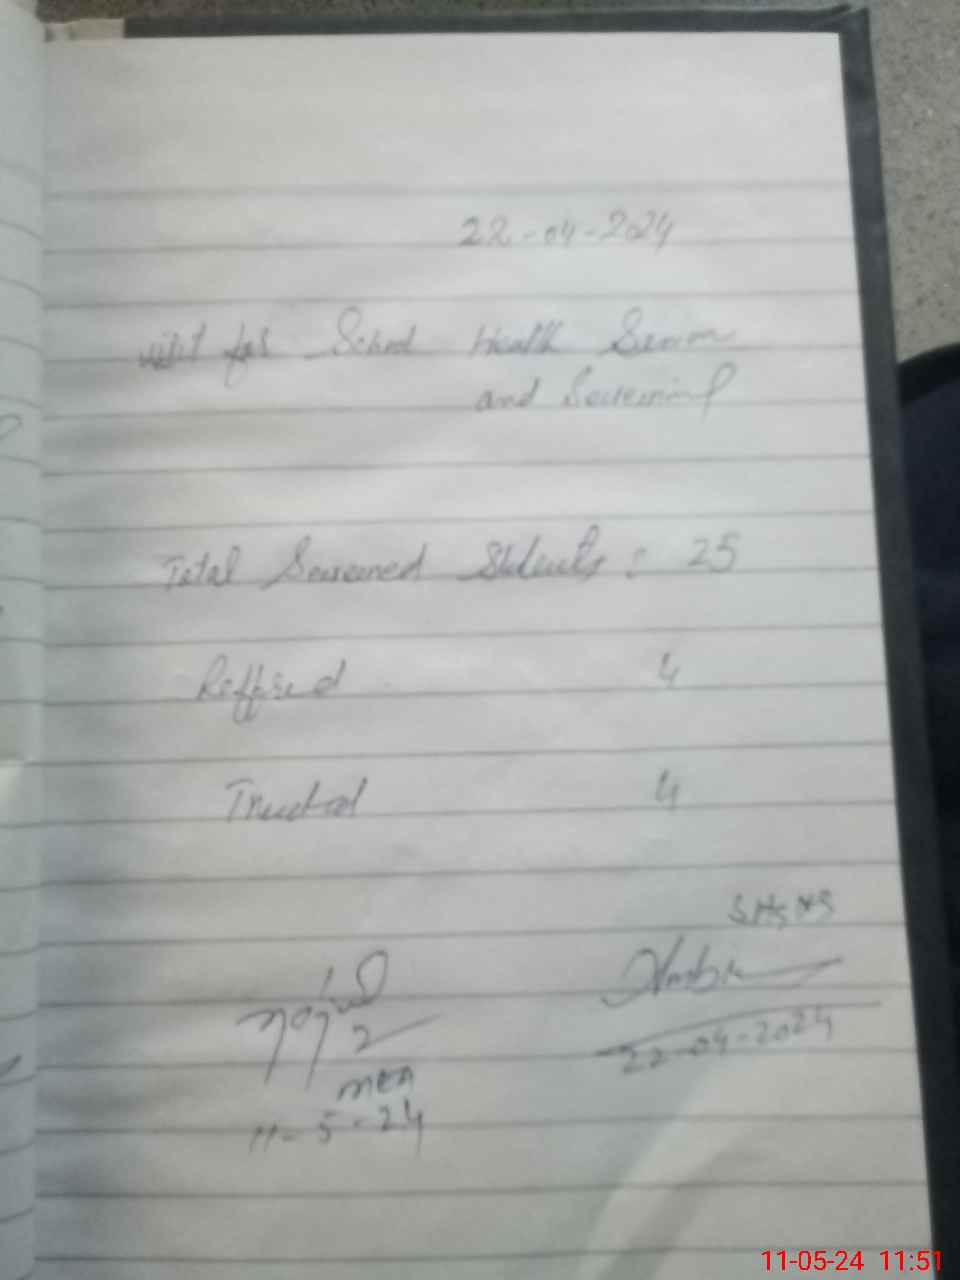 22-04-2024
visit for School Health Sesson
and Screening
Total Screened Students : 25
Reffered 4
Treated 4
SH&NS
22-04-2024
MEA
11-5-24
11-05-24 11:51